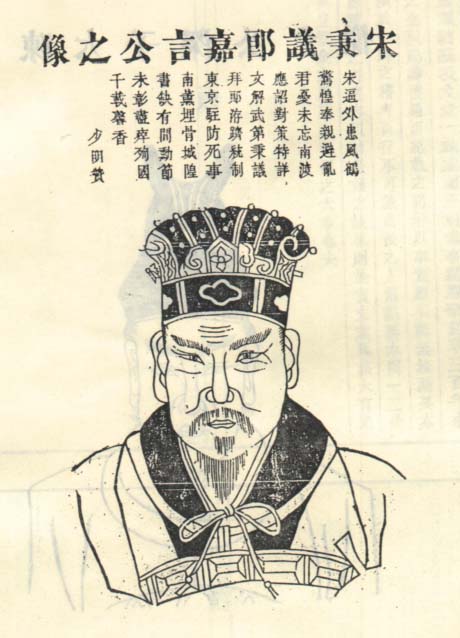 宋秉議郎嘉言公之像
宋逼外患風鶴
驚惶奉親避亂
君憂未忘南渡
應詔對策特詳
文解武第秉議
拜郎洊躋統制
東京駐防死事
南薰埋骨城隍
書缺有間勁節
未彰盡瘁殉國
千載馨香
少明贊